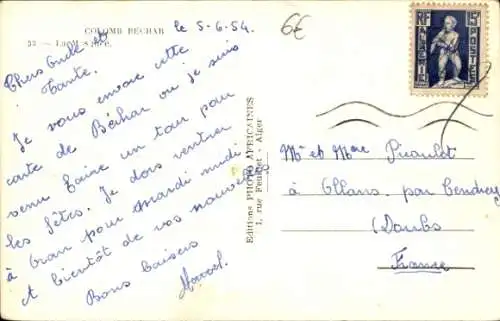 COLOMB BÉCHAR
le 5-6-54.
6€
Chers Oncle et
Tante.
Je vous envoie cette
carte de Béchar ou je suis
venu faire un tour pour
les fêtes. Je dois rentrer
à Oran pour mardi midi
et bientôt de vos nouvelles
Bons baisers
Marcel.
Editions PHOTO AFRICAINES
1, rue Feuillet - Alger
RF
15F
ALGERIE
POSTES
Mr et Mme Picaudot
à Ollans par Cendrey
(Doubs)
France